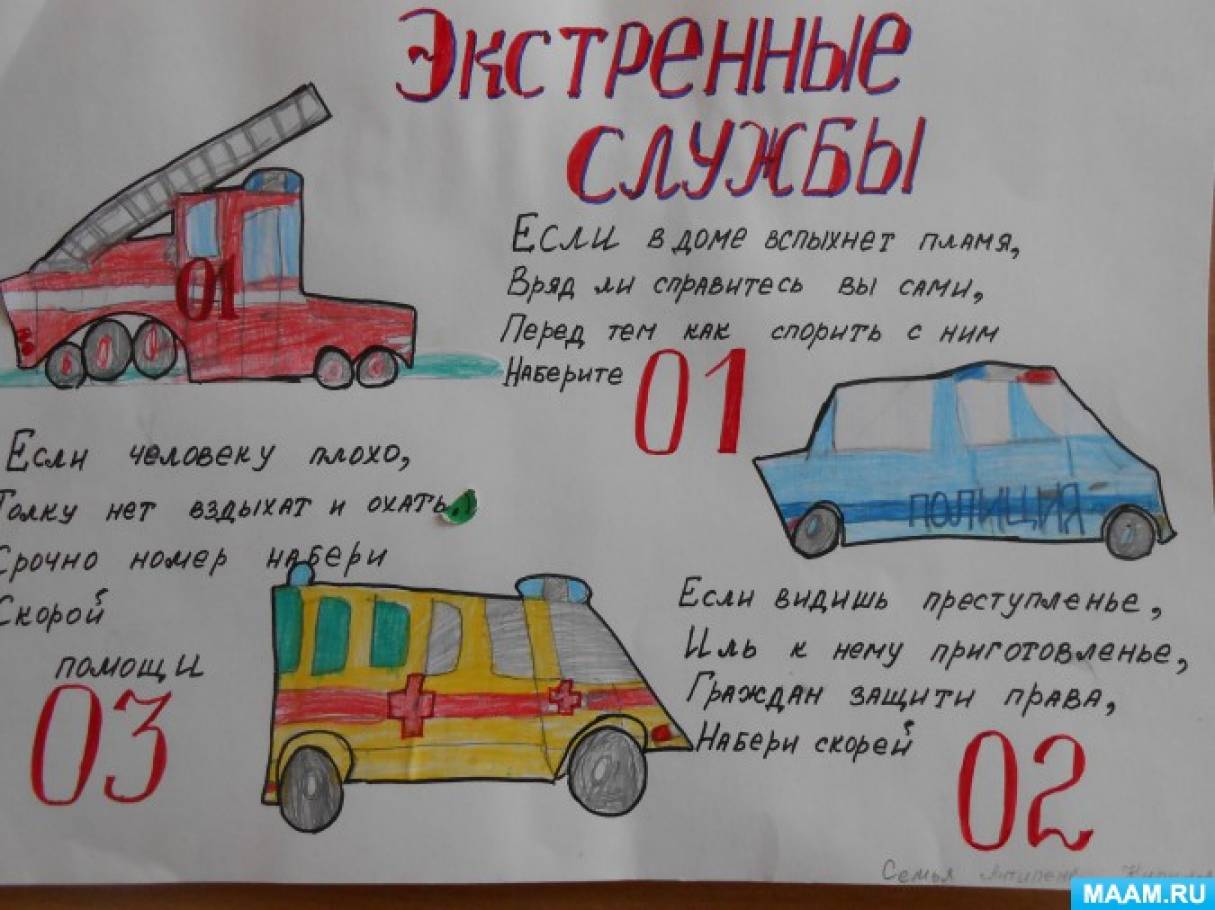 ЭКСТРЕННЫЕ
СЛУЖБЫ
01
Если в доме вспыхнет пламя,
Вряд ли справитесь вы сами,
Перед тем как спорить с ним
Наберите 01
Если человеку плохо,
Толку нет вздыхат и охать.
Срочно номер набери
Скорой
помощи
03
ПОЛИЦИЯ
Если видишь преступленье,
Иль к нему приготовленье,
Граждан защити права,
Набери скорей
02
Семья
MAAM.RU